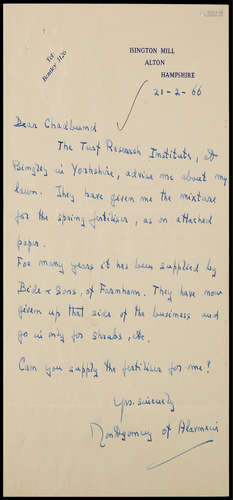 Tel:
Bentley 3126
ISINGTON MILL
ALTON
HAMPSHIRE
21-2-66
Dear Chadbund
The Turf Research Institute, at
Bingley in Yorkshire, advise me about my
lawn. They have given me the mixture
for the spring fertiliser, as on attached
paper.
For many years it has been supplied by
Bide & Sons, of Farnham. They have now
given up that side of the business and
go in only for shrubs, etc.
Can you supply the fertiliser for me?
Yrs. sincerely
Montgomery of Alamein